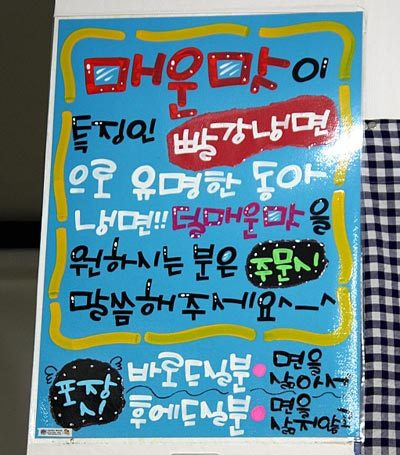 매운맛이
특징인 빨강냉면
으로 유명한 동아
냉면!! 덜매운맛을
원하시는 분은 주문시
말씀해주세요^-^
포장시
바로드실분 • 면을 삶아서
후에드실분 • 면을